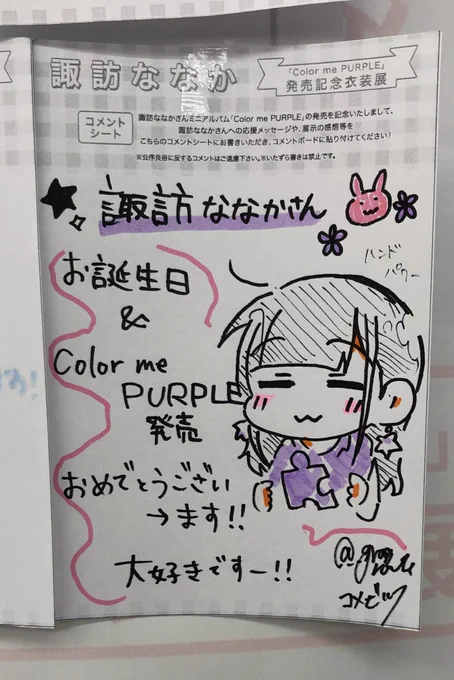 諏訪ななか
「Color me PURPLE」
発売記念衣装展
コメント
シート
諏訪ななかさんミニアルバム「Color me PURPLE」の発売を記念いたしまして、
諏訪ななかさんへの応援メッセージや、展示の感想等を
こちらのコメントシートにお書きいただき、コメントボードに貼り付けてください!
※公序良俗に反するコメントはご遠慮下さい。※いたずら書きは禁止です。
諏訪ななかさん
ハンド
パワー
お誕生日
&
Color me
PURPLE
発売
おめでとうござい
→ます!!
大好きですー!!
コメビツ